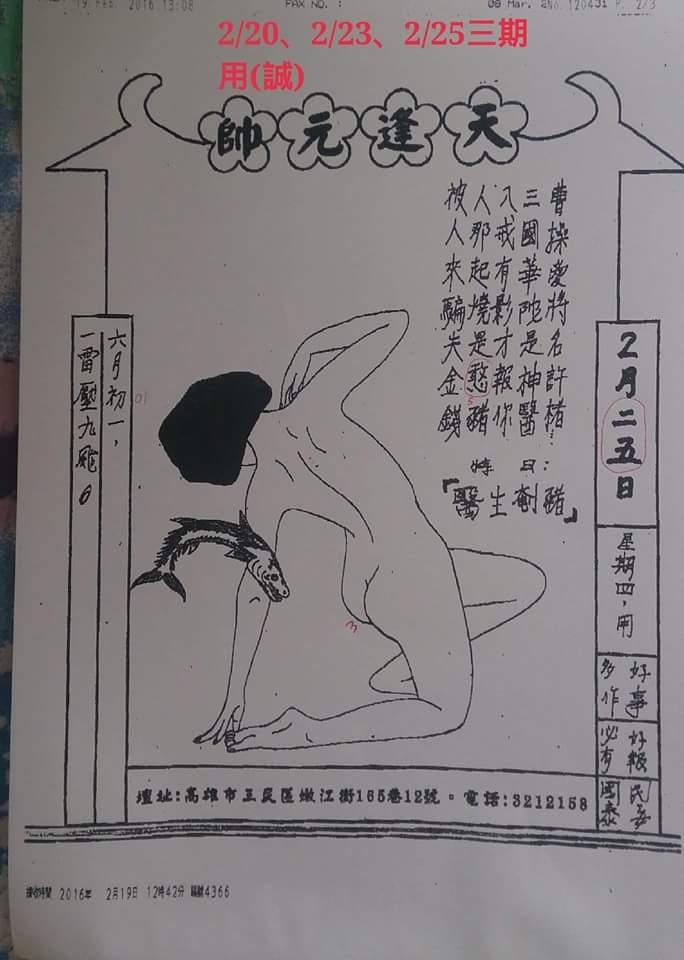 19 Feb. 2016 13:08 FAX NO. : 08 Mar. 2 No. 120431 P. 2/3
2/20、2/23、2/25三期
用(誠)
帥元逢天
曹操愛將名許楮…
三國華陀是神醫
八戒有影才報你
人那起燒是憨豬
被人來騙失金錢
詩曰:
「醫生刣豬」
2月二五日
星期四,用
好事多作
好報必有
民安國泰
六月初一,
一雷壓九颱。
01
5
3
壇址:高雄市三民區嫩江街165巷12號。電話:3212158
接收時間 2016年 2月19日 12時42分 編號4366